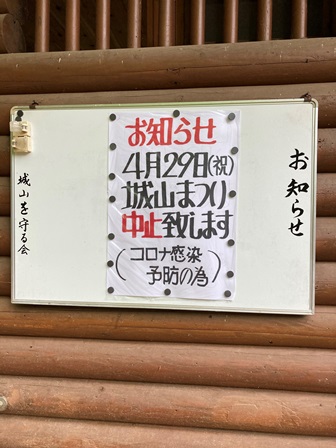 お知らせ
お知らせ
4月29日(祝)
城山まつり
中止致します
(コロナ感染
予防の為)
城山を守る会